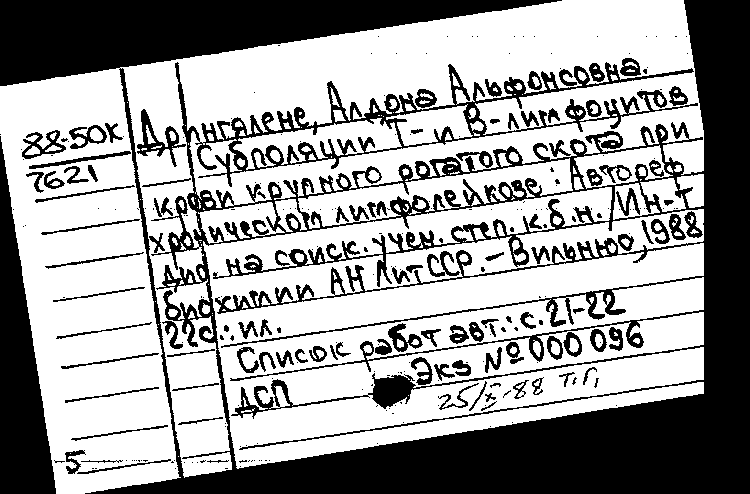 88-50к
7621
Дрингялене, Алдона Альфонсовна.
Субполяции Т- и В-лимфоцитов
крови крупного рогатого скота при
хроническом лимфолейкозе: Автореф.
дис. на соиск. учен. степ. к.б.н. /Ин-т
биохимии АН ЛитССР.-Вильнюс, 1988
22с.: ил.
Список работ авт.: с. 21-22
ДСП Экз №000096
25/X-88 т.г,
5